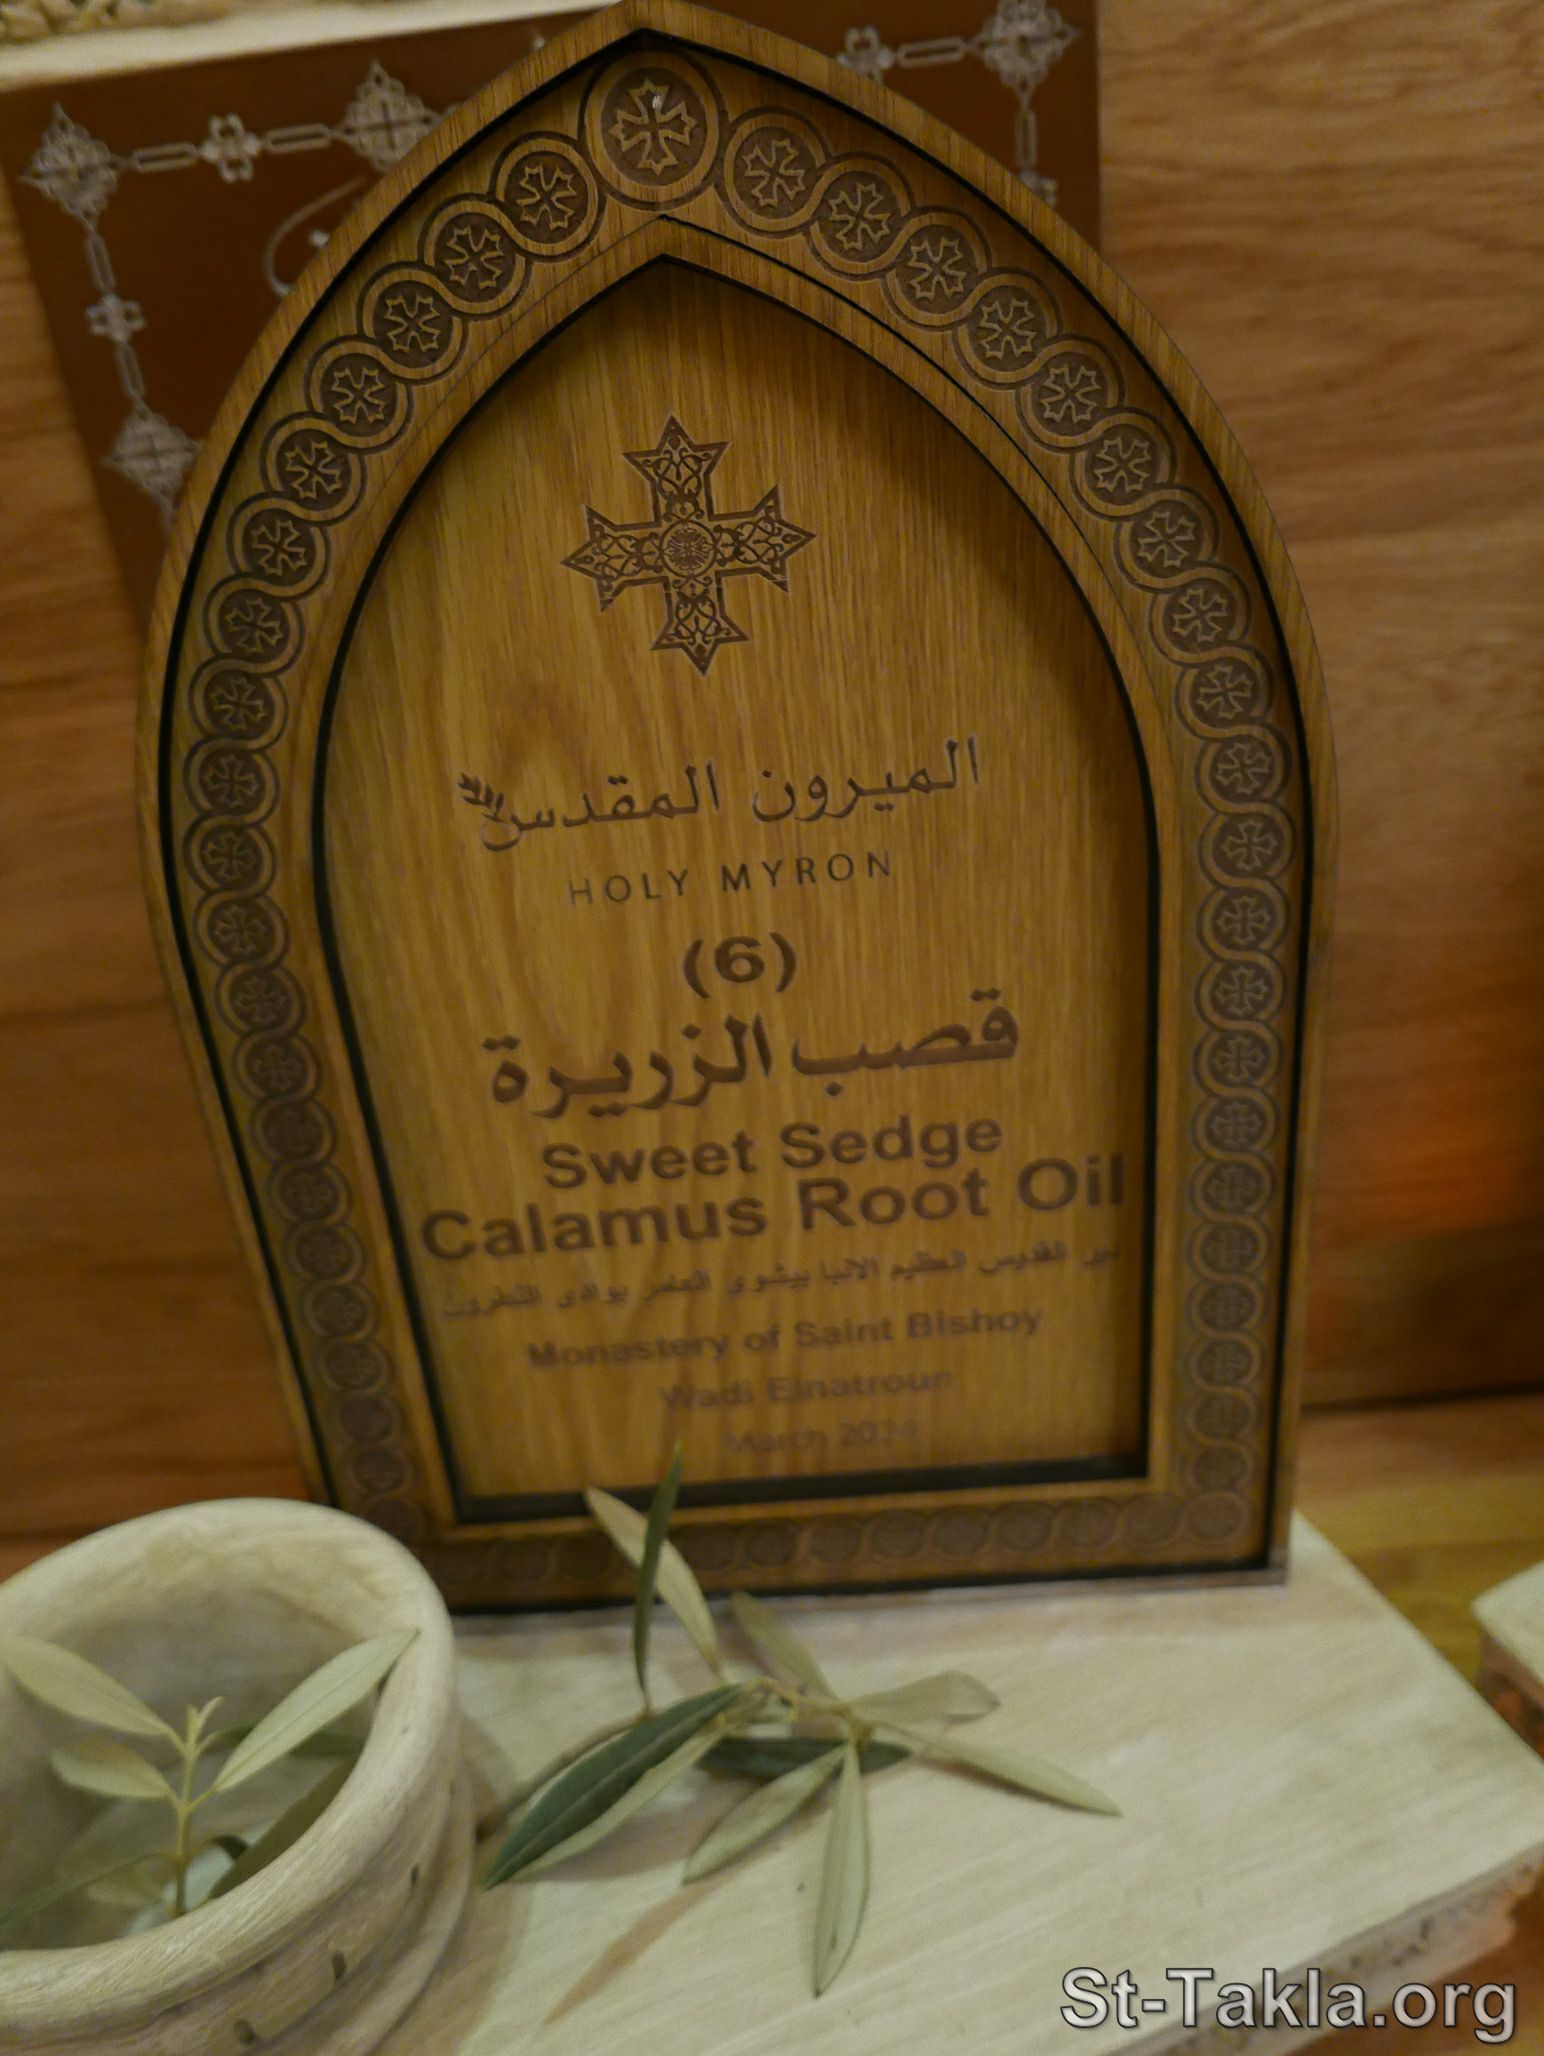 الميرون المقدس
HOLY MYRON
(6)
قصب الزريرة
Sweet Sedge
Calamus Root Oil
دير القديس العظيم الانبا بيشوى العامر بوادى النطرون
Monastery of Saint Bishoy
Wadi Elnatroun
March 2024
St-Takla.org